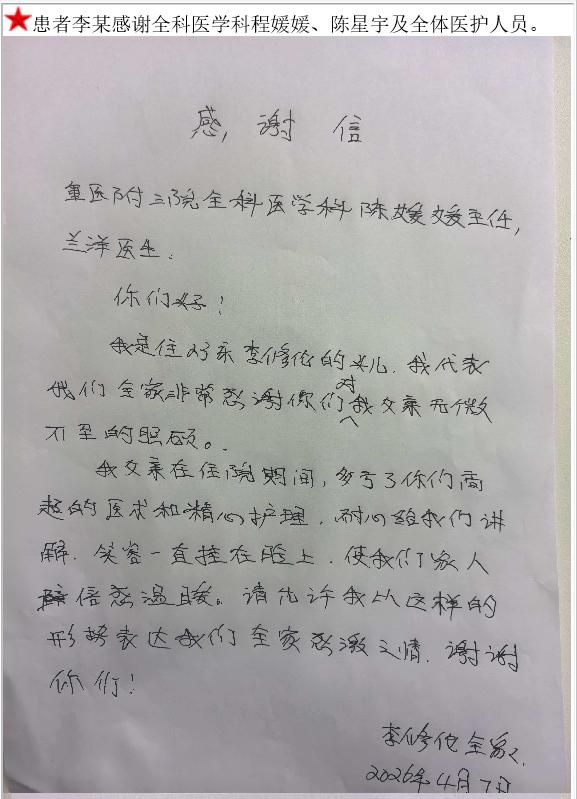 患者李某感谢全科医学科程媛媛、陈星宇及全体医护人员。
感谢信
重医附三院全科医学科陈媛媛主任,
兰洋医生.
你们好!
我是住23床李修伦的女儿.我代表
我们全家非常感谢你们对我父亲无微
不至的照顾。
我父亲在住院期间,多亏了你们高
超的医术和精心护理,耐心给我们讲
解.笑容一直挂在脸上,使我们家人
倍感温暖。请允许我以这样的
形势表达我们全家感激之情.谢谢
你们!
李修伦全家人
2026年4月7日